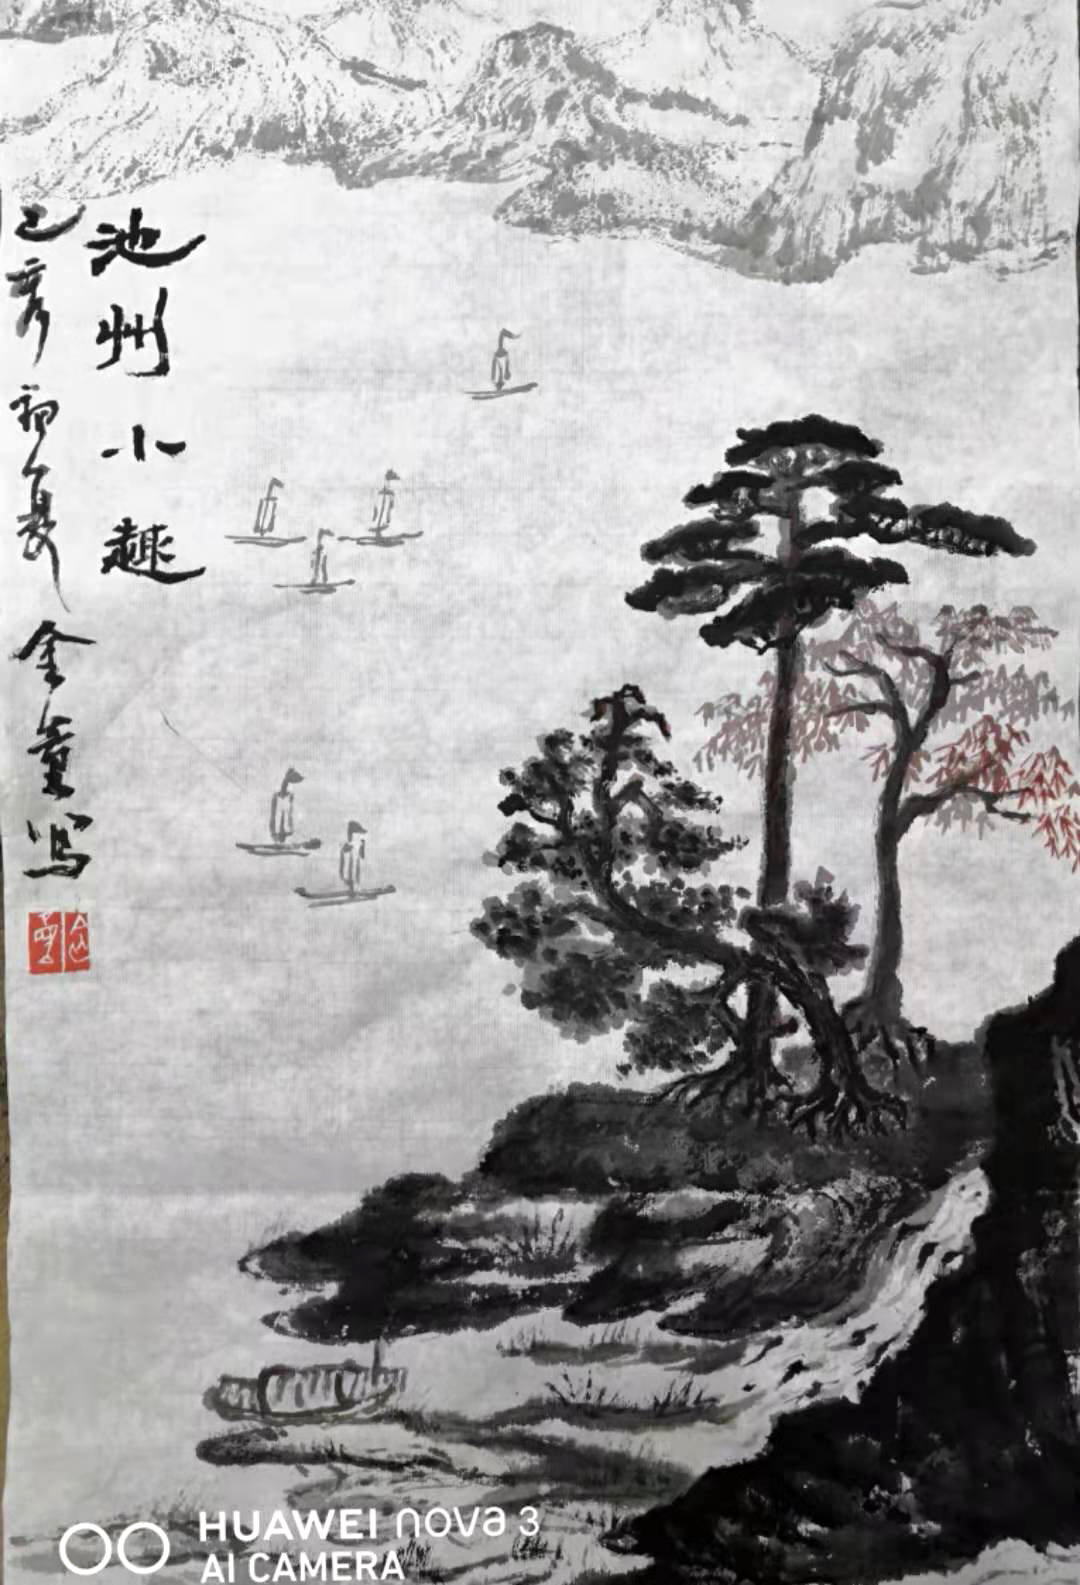 池州小趣
己亥初夏 金写
HUAWEI nova 3
AI CAMERA